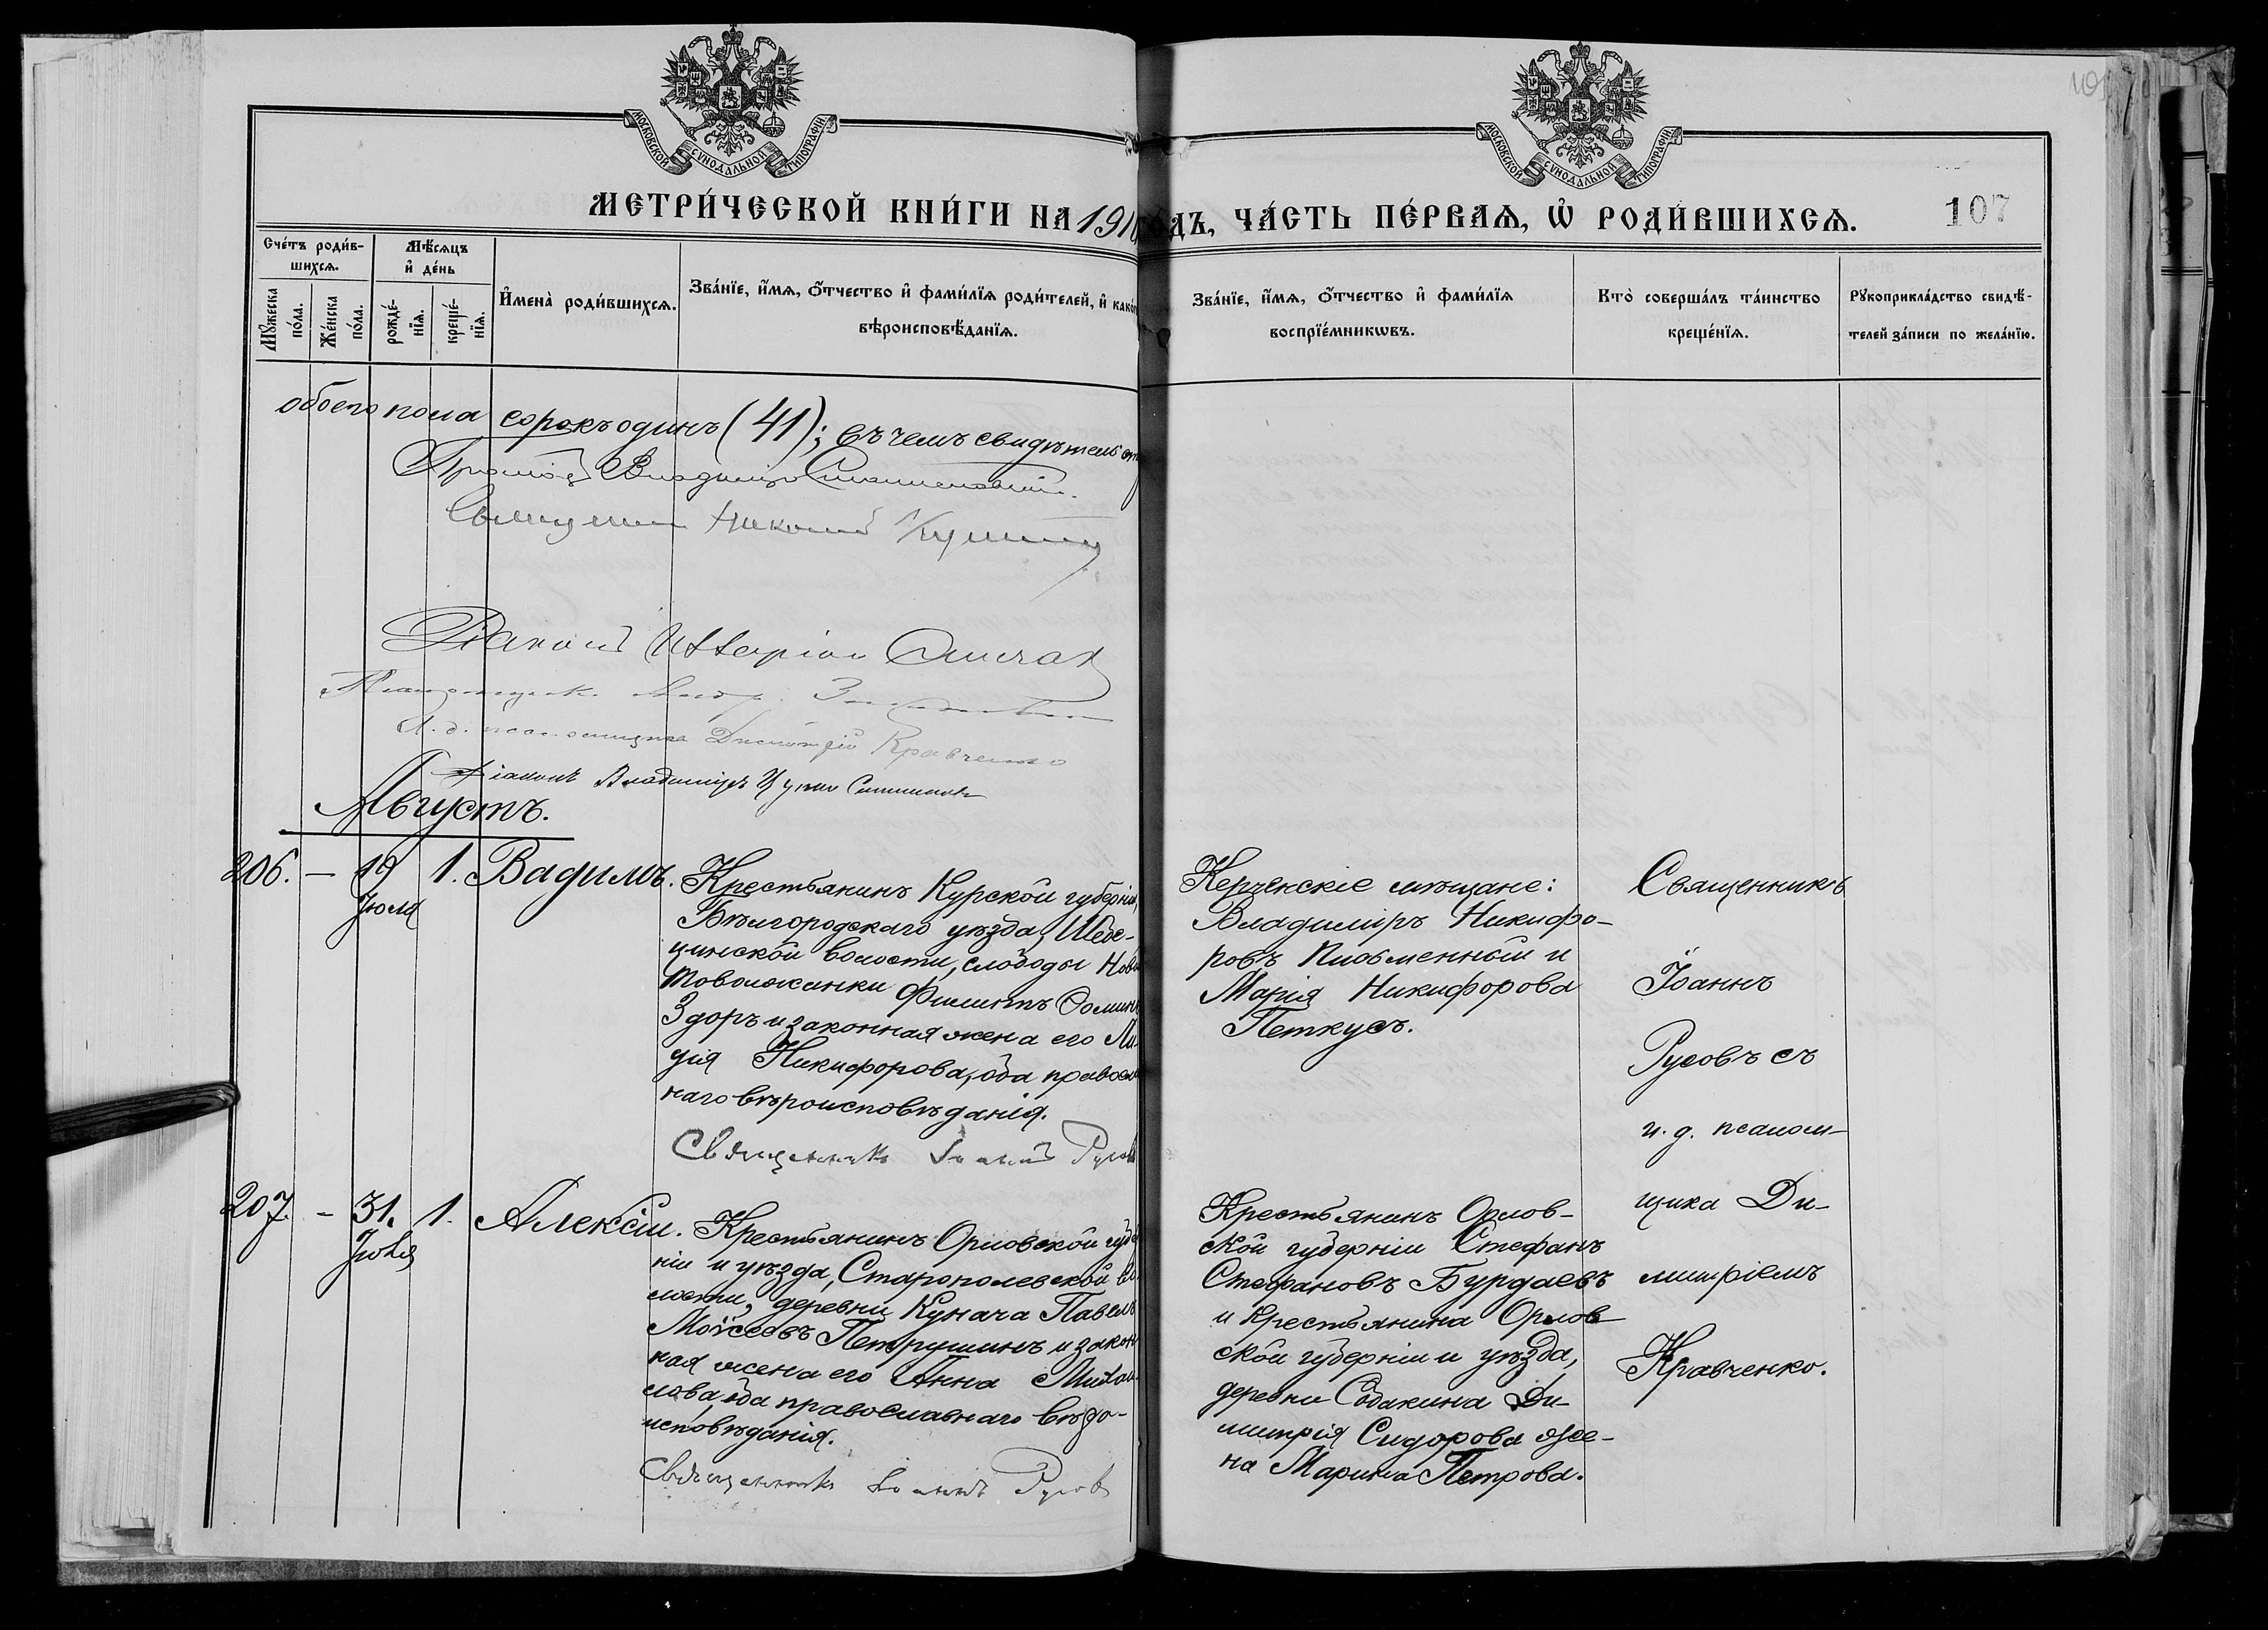 МОСКОВСКОЙ СѴНОДАЛЬНОЙ ТИПОГРАФІИ
МОСКОВСКОЙ СѴНОДАЛЬНОЙ ТИПОГРАФІИ
МЕТРИ́ЧЕСКОЙ КНИ́ГИ НА 191
ГОДЪ, ЧА́СТЬ ПЕ́РВАЯ, Ѡ РОДИ́ВШИХСЯ.
107
Сче́тъ роди́в-
шихся.
Мꙋжеска
по́ла.
Же́нска
по́ла.
Мѣ́сяцъ
и҆ де́нь
рожде́-
нїя.
креще́-
нїя.
И҆мена̀ роди́вшихся.
Зва́нїе, и҆́мя, о҆́тчество и҆ фами́лїя роди́телей, и҆ како
вѣроисповѣ́данїя.
Зва́нїе, и҆́мя, о҆́тчество и҆ фами́лїя
воспрїе́мникѡвъ.
Кто̀ соверша́лъ та́инство
креще́нїя.
Рꙋкоприкла́дство свидѣ́-
телей за́писи по жела́нїю.
обоего пола сорокъ одинъ (41); въ чемъ свидѣтельст
Владиміръ
Николай
Діаконъ Илларіон
И. д. псаломщика Димитрій Кравченко
Діаконъ Владиміръ
Августъ.
206. — 19 Іюля 1. Вадимъ.
Крестьянинъ Курской губерніи,
Бѣлгородскаго уѣзда, Шебе-
кинской волости, слободы Ново
Таволжанки Филиппъ Ѳомин
Здоръ и законная жена его Ли-
дія Никифорова, оба правосл
наго вѣроисповѣданія.
Священникъ Іоаннъ Русовъ
Керченскіе мѣщане:
Владиміръ Никифо-
ровъ Письменный и
Марія Никифорова
Петкусъ.
Священникъ
Іоаннъ
Русовъ съ
и. д. псалом-
щика Ди-
митріемъ
Кравченко.
207. — 31. Іюля 1. Алексій.
Крестьянинъ Орловской губе
ніи и уѣзда, Старополевской во
лости, деревни Кунача Павелъ
Моѵсеевъ Петрушинъ и закон
ная жена его Анна Михаи
лова, оба православнаго вѣро-
исповѣданія.
Священникъ Іоаннъ Русов
Крестьянинъ Орлов-
ской губерніи Стефанъ
Стефановъ Бурдаевъ
и крестьянина Орлов
ской губерніи и уѣзда,
деревни Собакина Ди-
митрія Сидорова же-
на Марина Петрова.